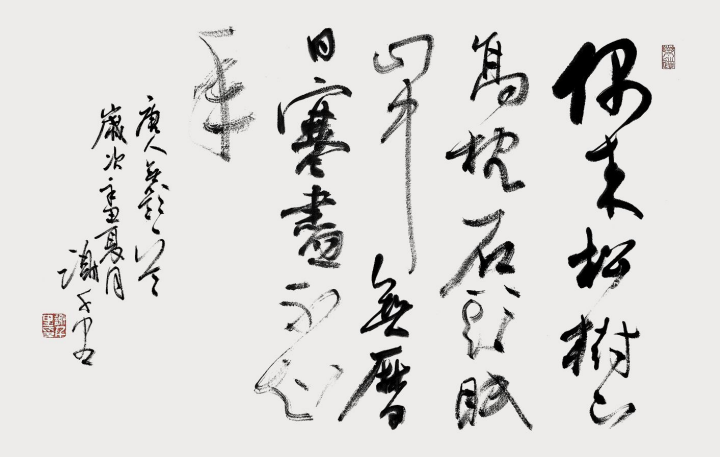 偶来松樹下
高枕石頭眠
山中無曆
日寒盡不知
年
唐人無題
歲次辛丑夏月
謝